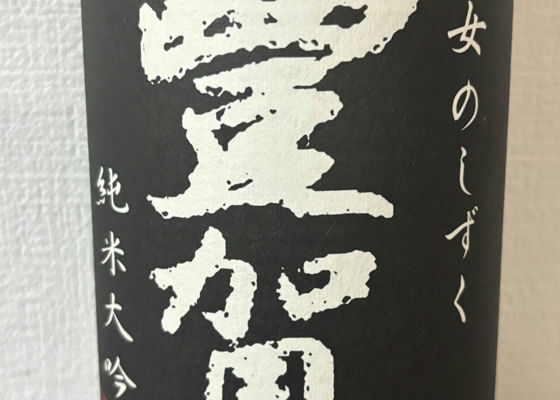 女のしずく
豊賀
純米大吟